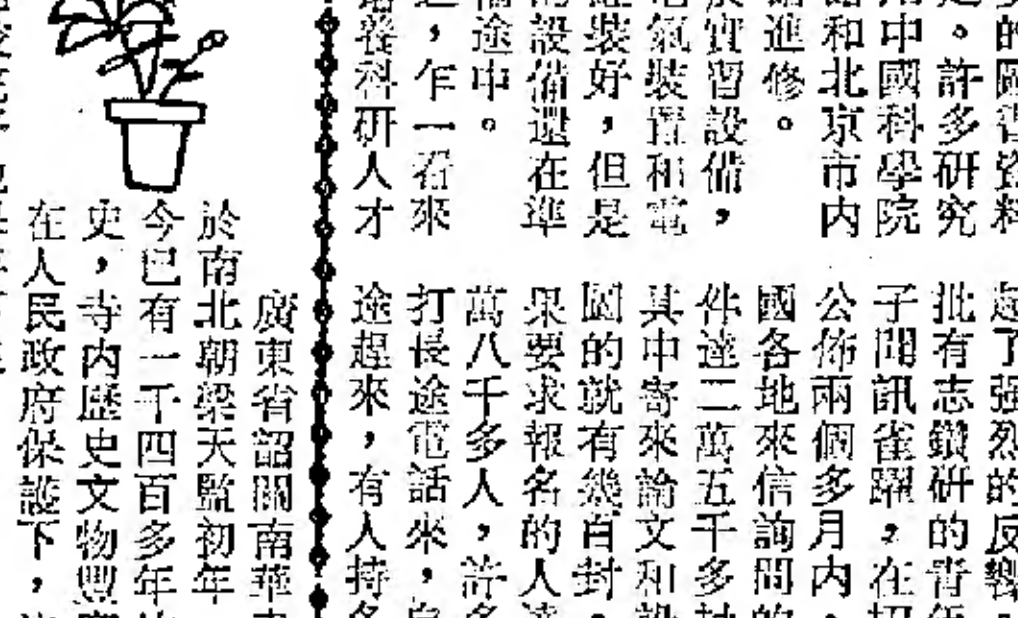 的圖書資料
。許多研究
中國科學院
和北京市内
進修。
實習設備，
氣裝置和電
裝好，但是
設備還在準
途中。
，乍一看來
養科研人才
起了强烈的反響，
批有志鑽研的青
子聞訊雀躍，在招
公佈兩個多月内，
國各地來信詢問的
件達二萬五千多封
其中寄來論文和設
圖的就有幾百封。
果要求報名的人達
萬八千多人，許多
打長途電話來，自
途趕來，有人持各
廣東省韶關南華
於南北朝梁天監初年
今已有一千四百多年
史，寺内歷史文物豐富
在人民政府保護下，